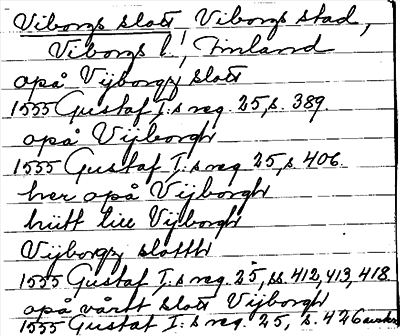 Viborgs slott, Viborgs stad,
Viborgs l., Finland
opå Vijborgz slott
1555 Gustaf I:s reg. 25, s. 389.
opå Vijborgh
1555 Gustaf I:s reg. 25, s. 406.
her opå Vijborgh
hiitt till Vijborgh
Vijborgz slotth
1555 Gustaf I:s reg. 25, ss. 412, 413, 418.
opå vårtt slott Vijborgh
1555 Gustaf I:s reg. 25, s. 426